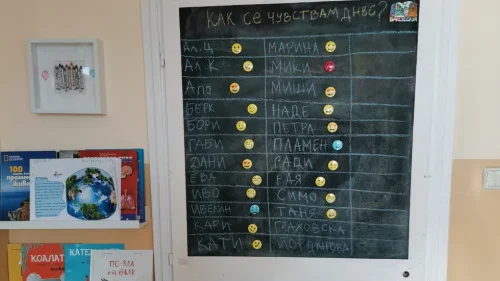 КАК СЕ ЧУВСТВАМ ДНЕС?
АЛ.Ц
МАРИНА
АЛ.К
МИКИ
АПО
МИШИ
БЕРК
НАДЕ
БОРИ
ПЕТРА
ГАБИ
ПЛАМЕН
ДАНИ
РАДИ
ЕВА
РАЯ
ИВО
СИМО
ИВЕЛИН
ТАНЯ
КАРИ
ГРАХОВСКА
КАТИ
ЙОРДАНОВА
NATIONAL
GEOGRAPHIC
100
КОАЛАТ
КАТЕ